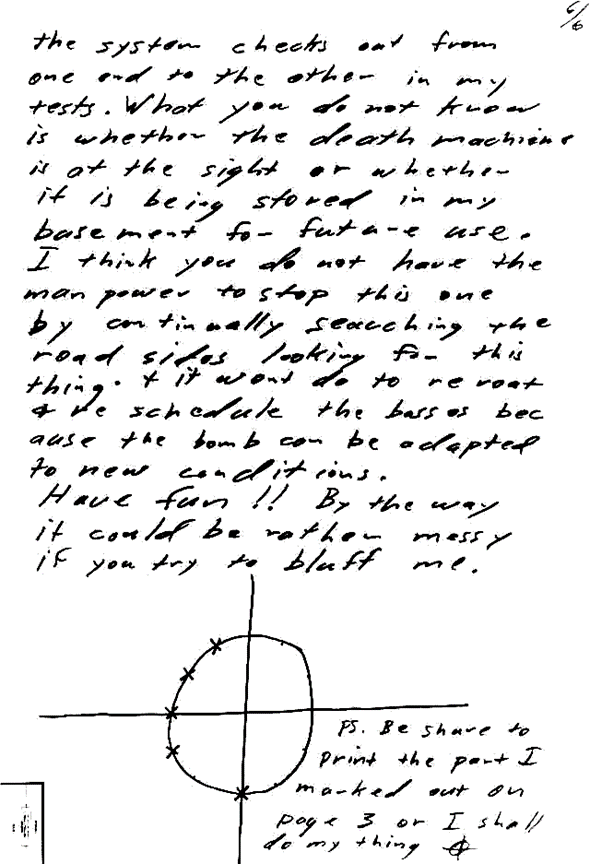 6/6
the system checks out from
one end to the other in my
tests. What you do not know
is whether the death machine
is at the sight or whether
it is being stored in my
basement for future use.
I think you do not have the
man power to stop this one
by continually searching the
road sides looking for this
thing. + it wont do to re roat
+ re schedule the busses bec
ause the bomb can be adapted
to new conditions.
Have fun !! By the way
it could be rather messy
if you try to bluff me.
PS. Be shure to
print the part I
marked out on
page 3 or I shall
do my thing